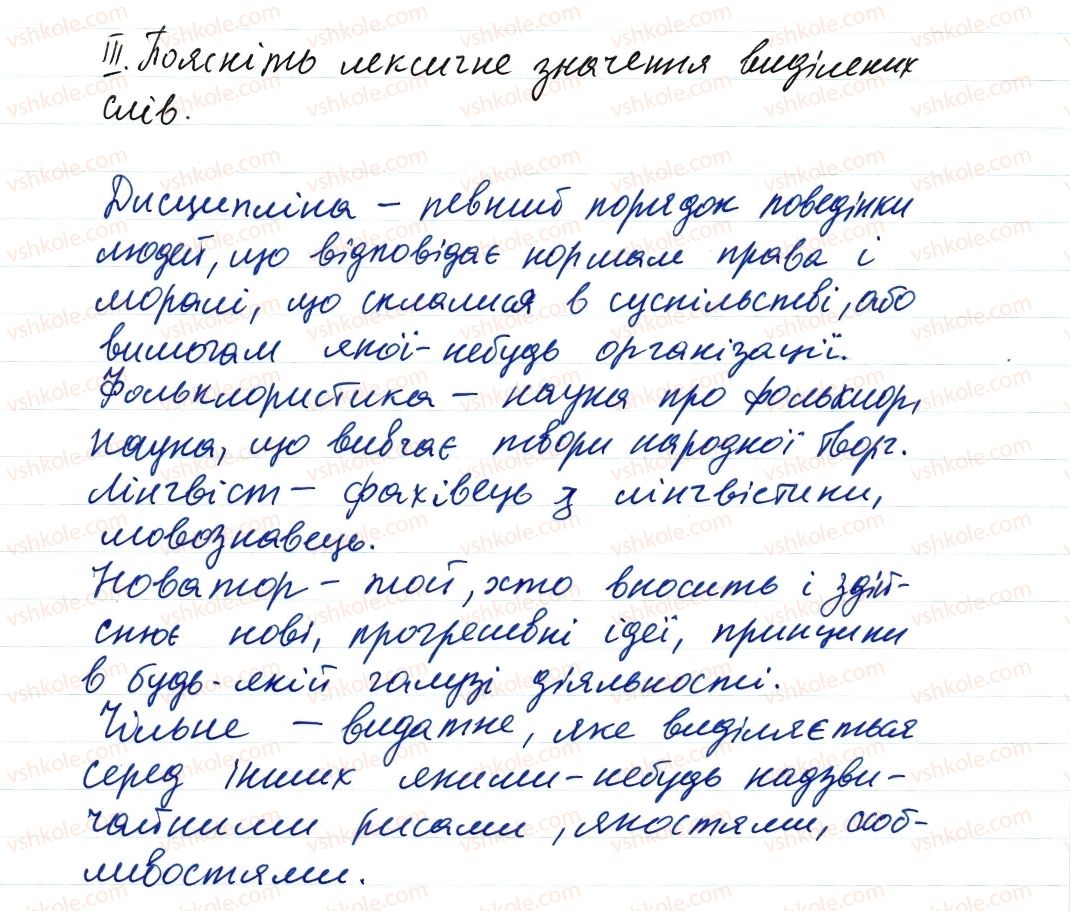 III. Поясніть лексичне значення виділених
слів.
Дисципліна – певний порядок поведінки
людей, що відповідає нормам права і
моралі, що склалися в суспільстві, або
вимогам якої-небудь організації.
Фольклористика – наука про фольклор,
наука, що вивчає твори народної творч.
Лінгвіст – фахівець з лінгвістики,
мовознавець.
Новатор – той, хто вносить і здій-
снює нові, прогресивні ідеї, принципи
в будь-якій галузі діяльності.
Чільне – видатне, яке виділяється
серед інших якими-небудь надзви-
чайними рисами, якостями, особ-
ливостями.